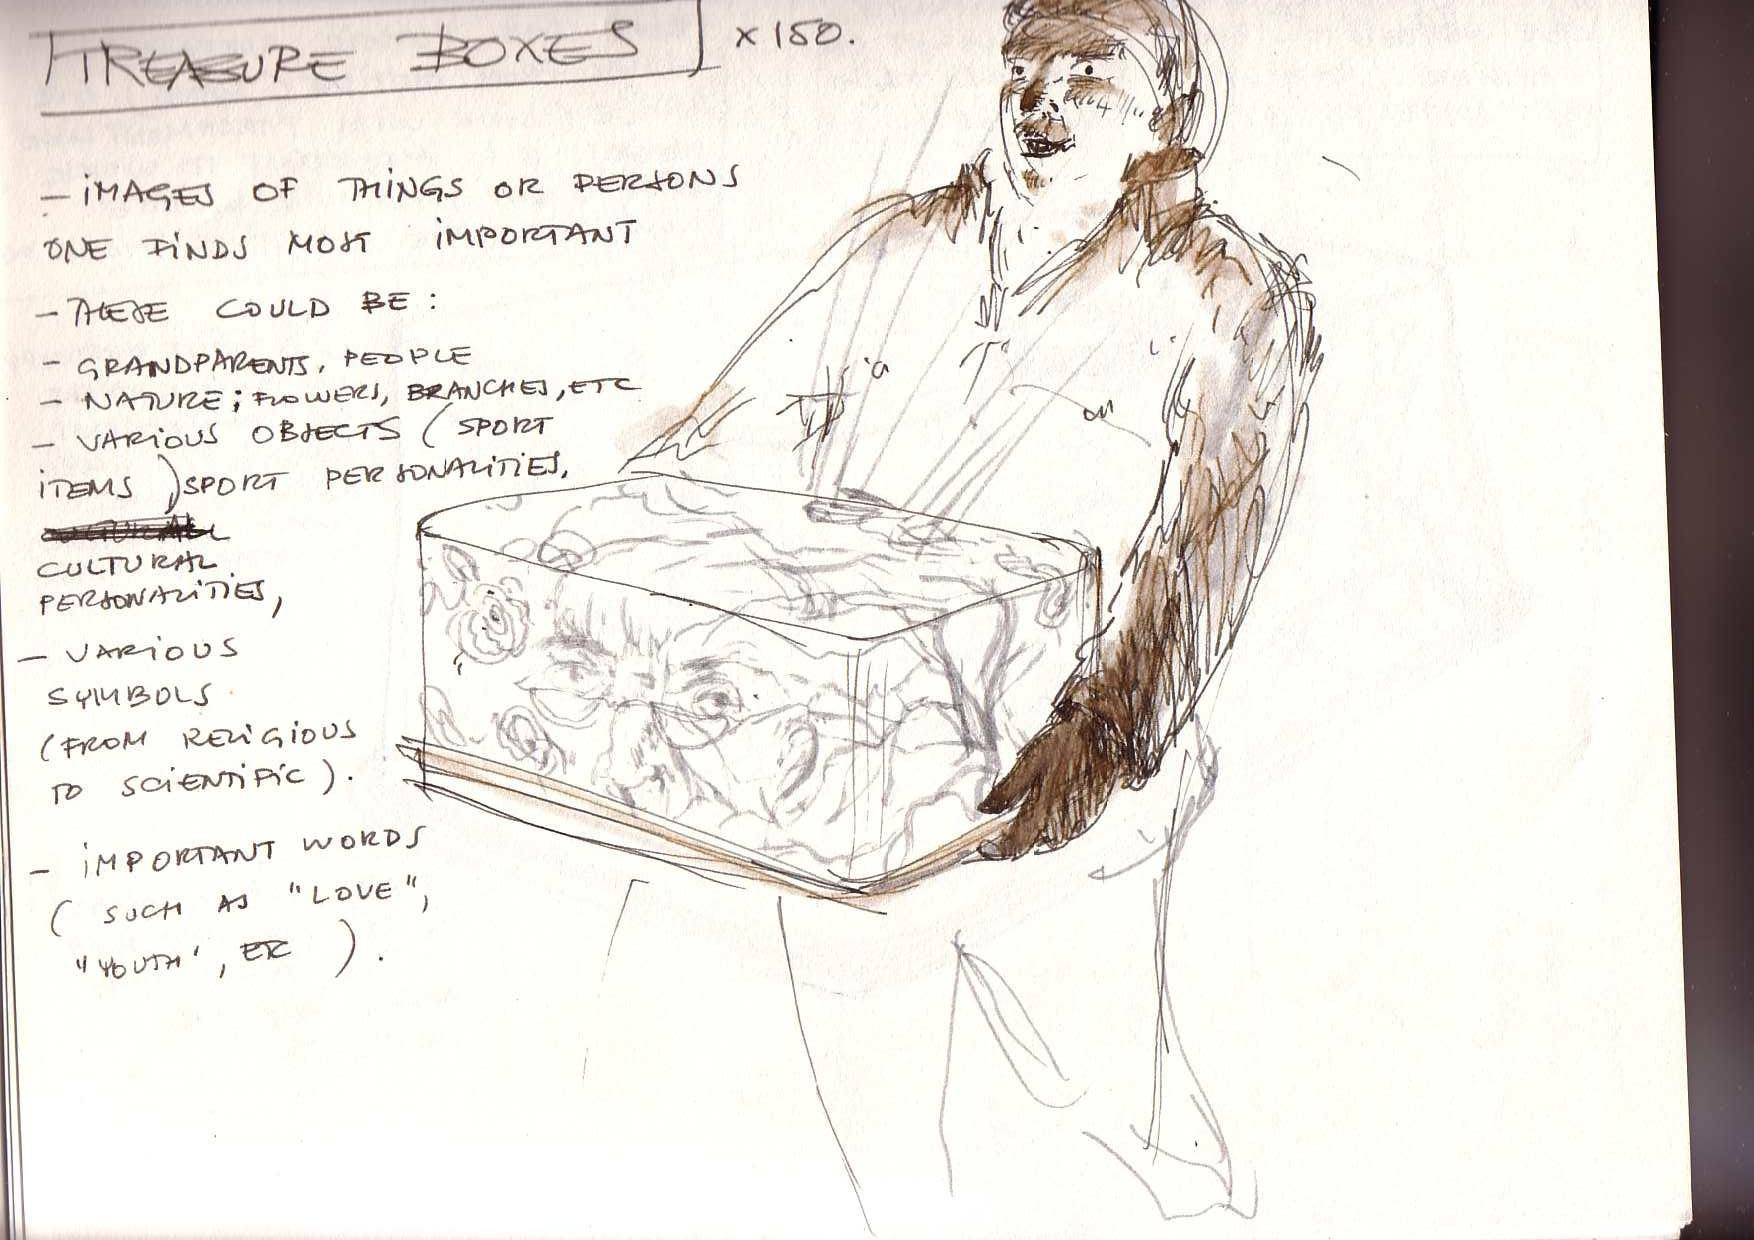 TREASURE BOXES x 150.
- IMAGES OF THINGS OR PERSONS
ONE FINDS MOST IMPORTANT
- THESE COULD BE:
- GRANDPARENTS, PEOPLE
- NATURE; FLOWERS, BRANCHES, ETC
- VARIOUS OBJECTS (SPORT
ITEMS), SPORT PERSONALITIES,
CULTURAL
PERSONALITIES,
- VARIOUS
SYMBOLS
(FROM RELIGIOUS
TO SCIENTIFIC).
- IMPORTANT WORDS
(SUCH AS "LOVE",
"YOUTH", ETC).